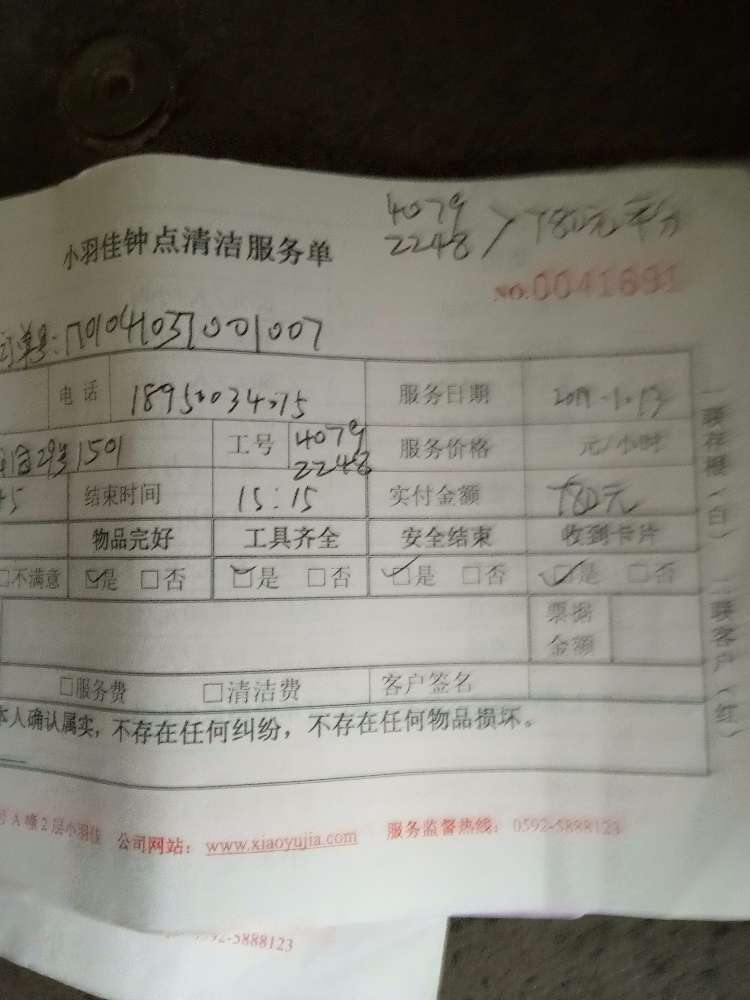 4079
2248 > 780元平分
小羽佳钟点清洁服务单
NO.0041891
订单号:
电话 服务日期
29号1501 工号 4079 2248 服务价格 元/小时
45 结束时间 15:15 实付金额 780元
物品完好 工具齐全 安全结束 收到卡片
□不满意 ☑是 □否 ☑是 □否 ☑是 □否 ☑是 □否
票据金额
□服务费 □清洁费 客户签名
本人确认属实，不存在任何纠纷，不存在任何物品损坏。
一联存根（白） 二联客户（红）
A幢2层小羽佳 公司网站：www.xiaoyujia.com 服务监督热线：0592-5888123
0592-5888123